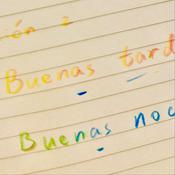 én
Buenas tard
Buenas noc